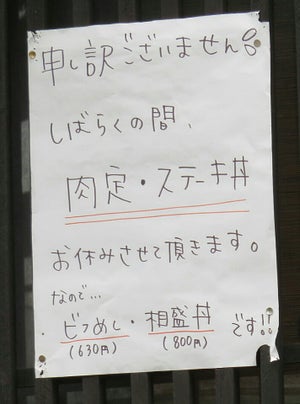 申し訳ございません。
しばらくの間、
肉定・ステーキ丼
お休みさせて頂きます。
なので…
ビフめし・相盛丼です!!
(630円) (800円)